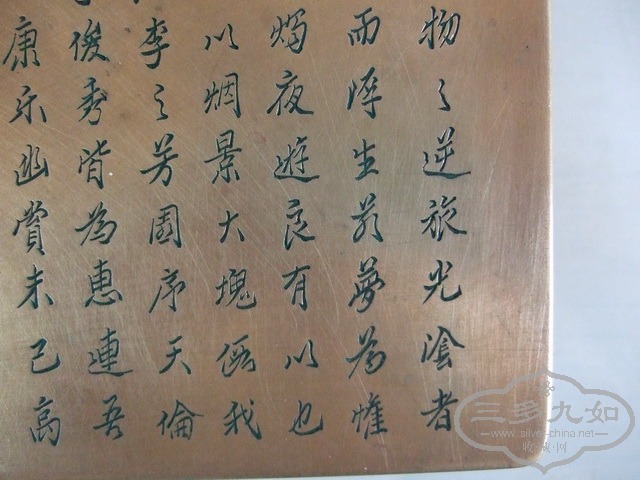 物之逆旅光陰者
而浮生若夢為懽
燭夜遊良有以也
以烟景大塊假我
李之芳園序天倫
俊秀皆為惠連吾
康乐幽賞未已高
三多九如
www.silver-china.net
收藏·网